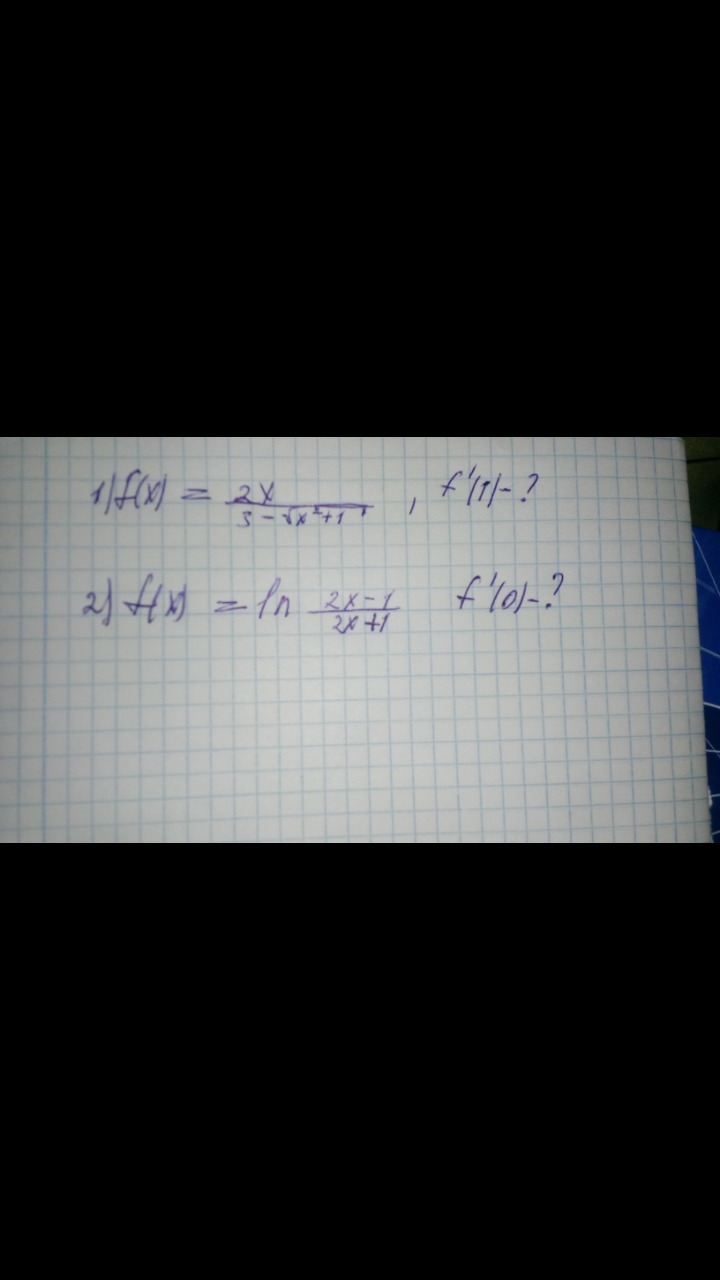 1) f(x) = 2x / (3 - √(x²+1)) , f'(1) - ?
2) f(x) = ln (2x-1)/(2x+1) f'(0) - ?